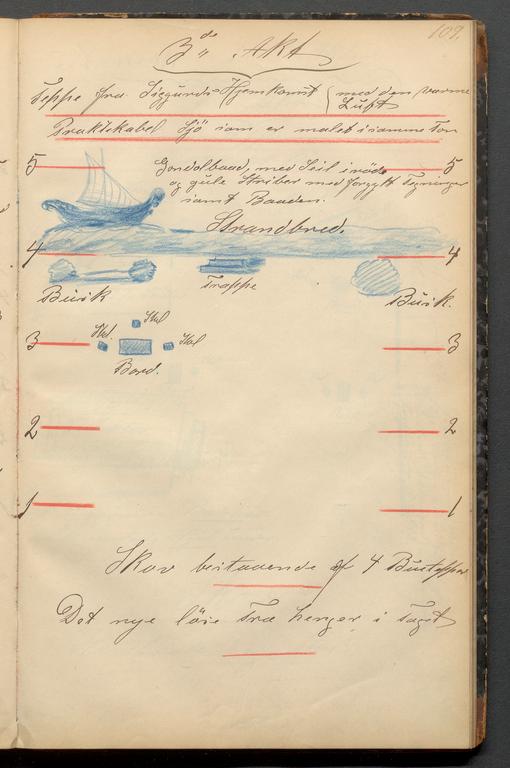 109.
3die Akt
Teppe fra Siegurds Hjemkomst (med den varme
Luft
Praktikabel Sjö som er malet i samme Ton
5 Gondolbaad, med Seil i röde 5
og gule Striber med forgyldt Tegninger
samt Baaden.
Strandbred.
4 4
Busk Trappe Busk.
Stol
3 Stol Stol 3
Bord.
2 2
1 1
Skov bestaaende af 4 Buetepper
Det nye löse Træ henger i Taget